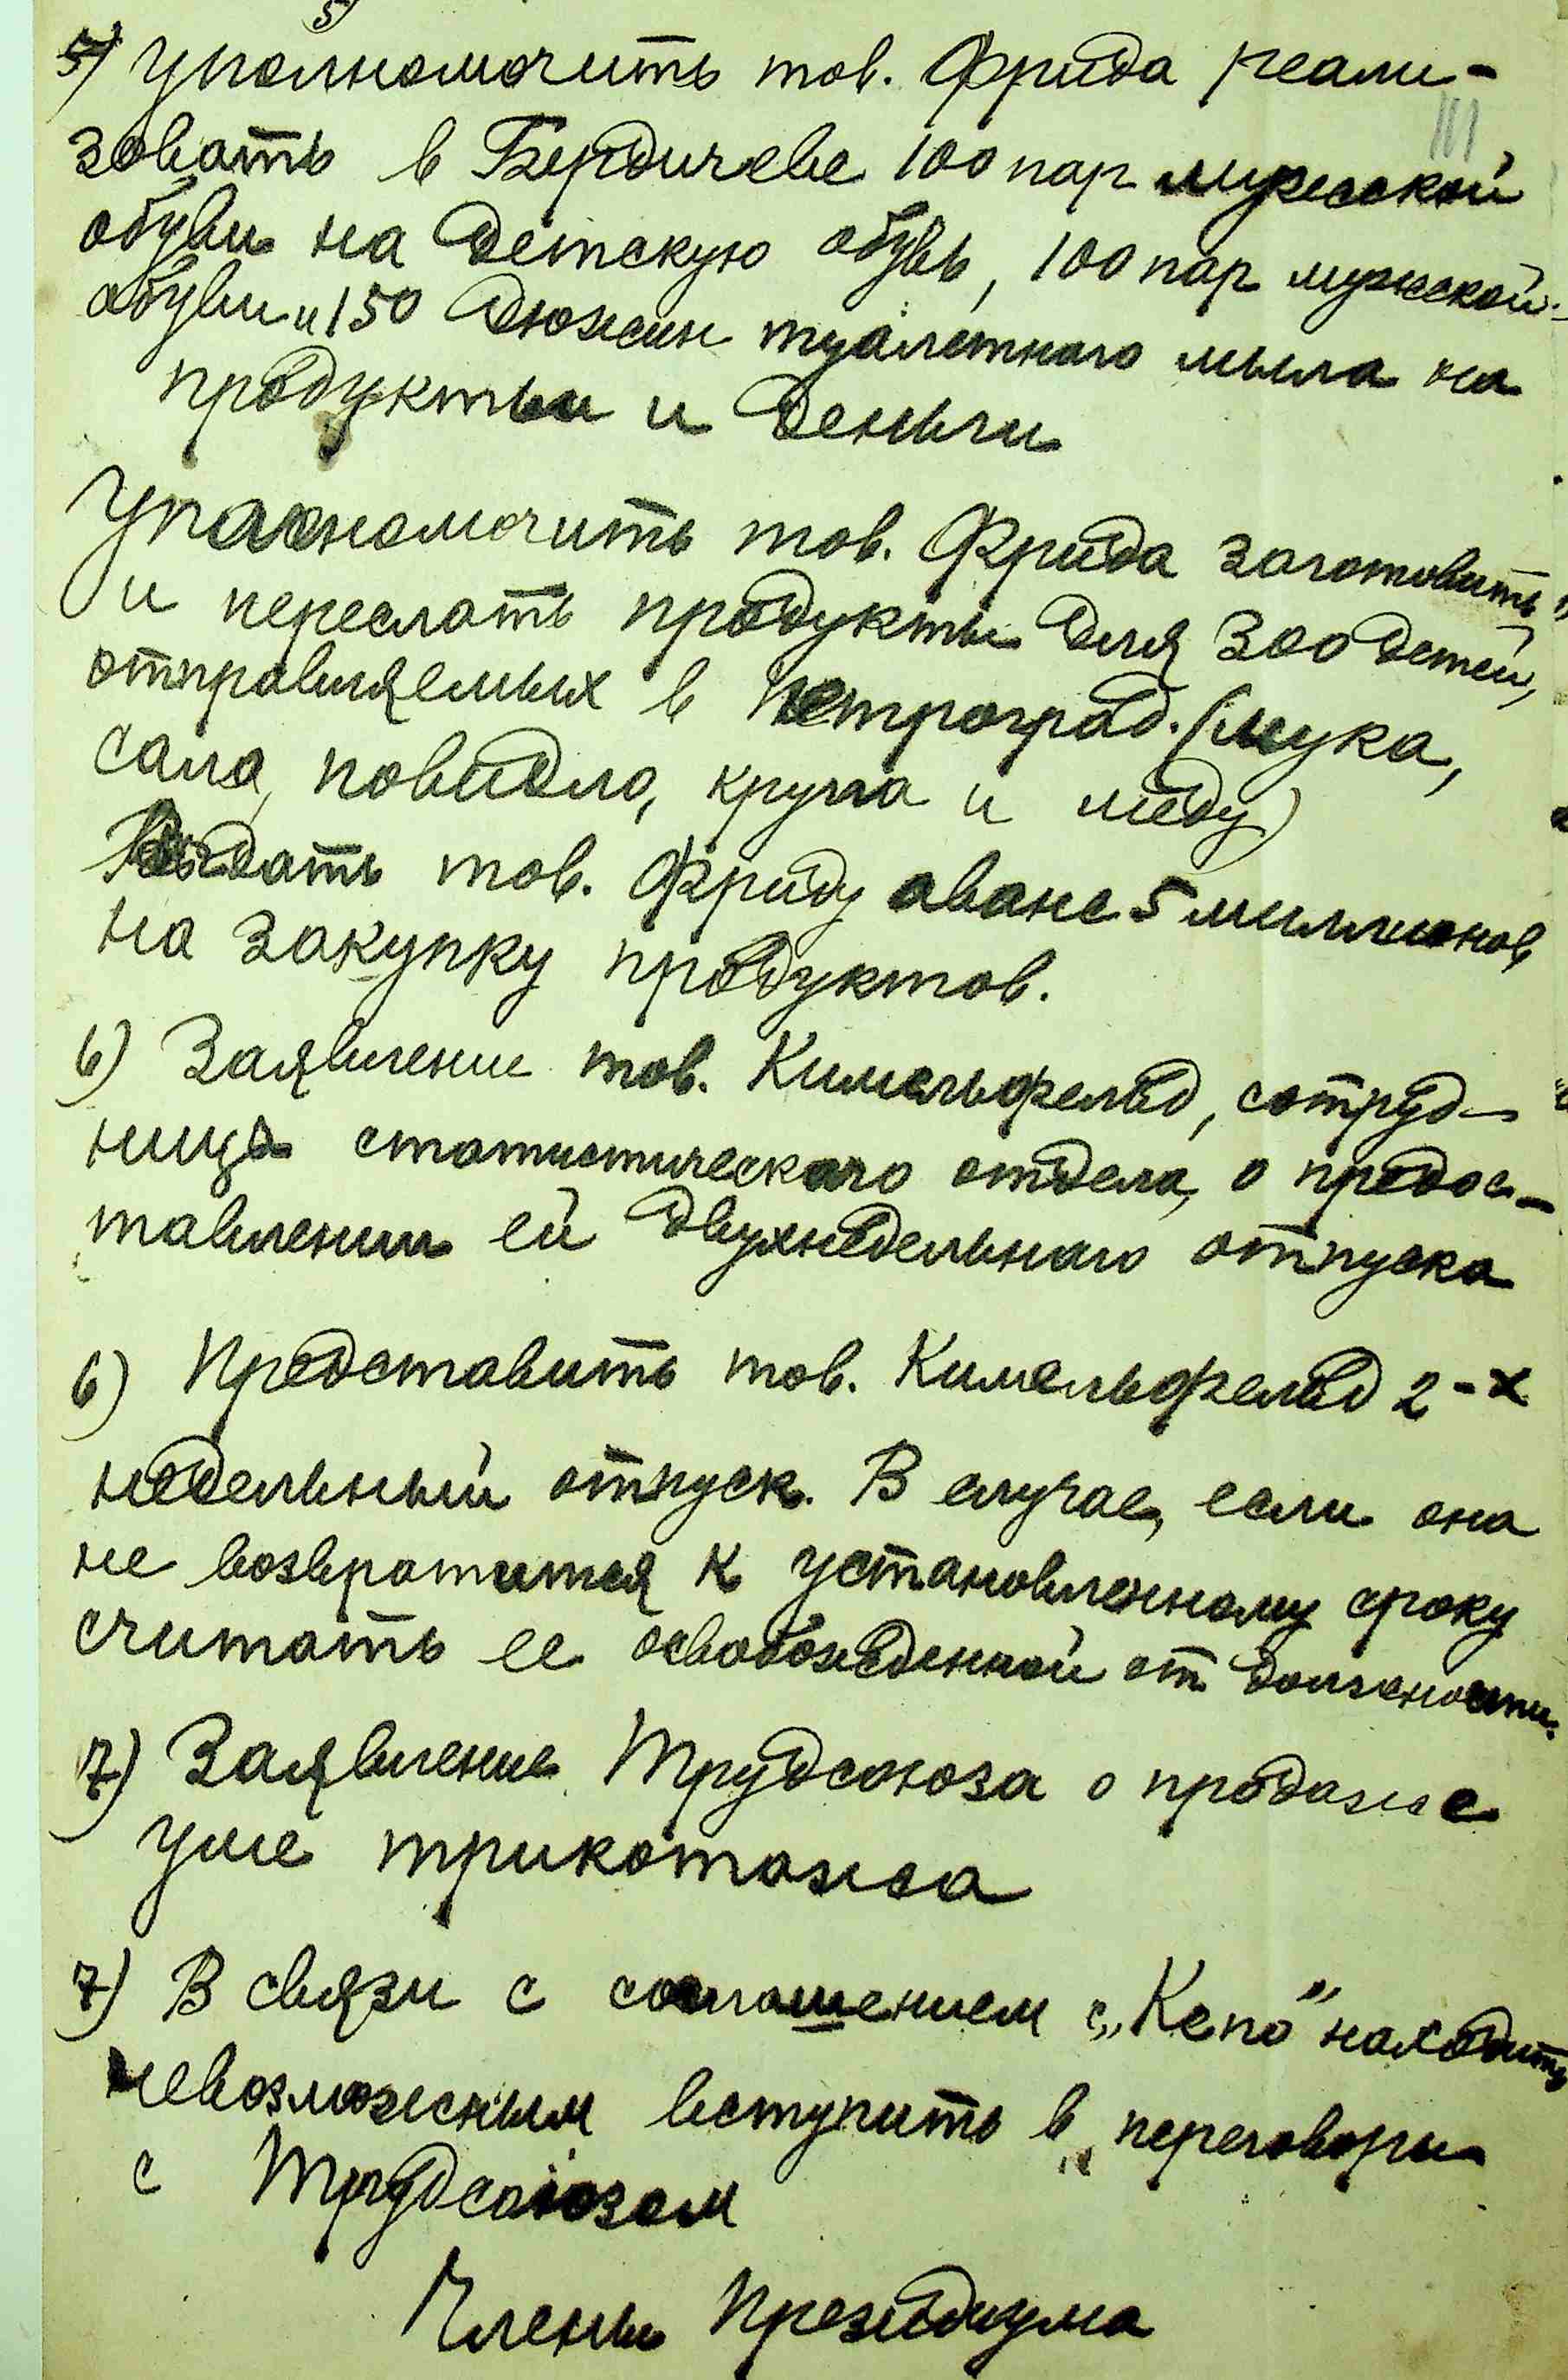 5
5) Уполномочить тов. Фрида реали-
зовать в Бердичеве 100 пар мужской
обуви на детскую обувь, 100 пар мужской
обуви и 150 дюжин туалетного мыла на
продукты и деньги
Уполномочить тов. Фрида заготовить
и переслать продукты для 300 детей,
отправляемых в Петроград. (мука,
сало, повидло, крупа и меду)
Выдать тов. Фриду аванс 5 миллионов
на закупку продуктов.
6) Заявление тов. Кимельфельд, сотруд-
ница статистического отдела, о предос-
тавлении ей двухнедельного отпуска
6) Представить тов. Кимельфельд 2-х
недельный отпуск. В случае, если она
не возвратится к установленному сроку
считать ее освобожденной от должности.
7) Заявление Трудсоюза о продаже
уме трикотажа
7) В связи с соглашением с „Кепо" находить
невозможным вступить в переговоры
с Трудсоюзом
Члены Президиума